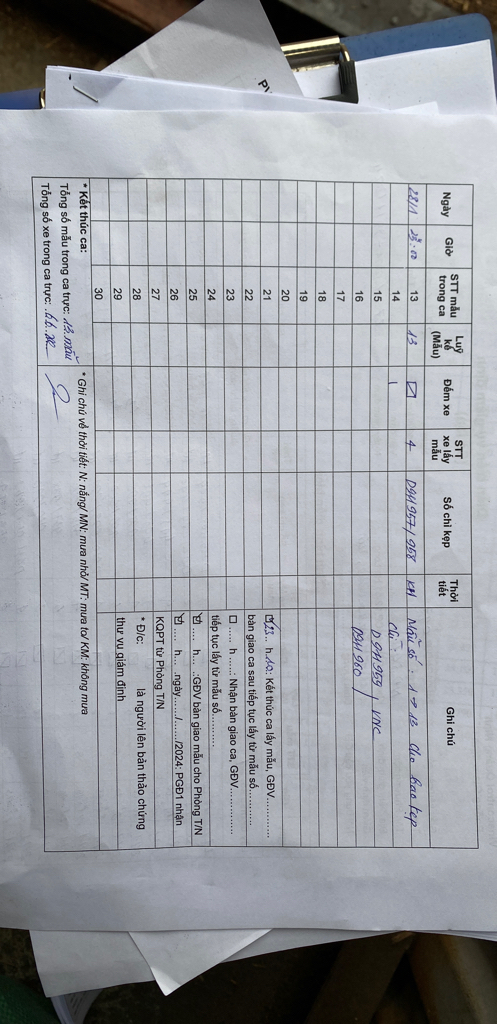 Ngày Giờ STT mẫu trong ca Luỹ kế (Mẫu) Đếm xe STT xe lấy mẫu Số chì kẹp Thời tiết Ghi chú
13 13 4 D911957/958 KM Mẫu số : 1 → 13 cho bao kẹp
14 chì :
15 D911959 / VNC
16 D911960 /
17
18
19
20
21 ☑ 23 .. h 10: Kết thúc ca lấy mẫu, GĐV............
22 bàn giao ca sau tiếp tục lấy từ mẫu số..........
23 ☐ ...... h ......: Nhận bàn giao ca, GĐV..............
24 tiếp tục lấy từ mẫu số..........
25 ☑ ..... h... ..GĐV bàn giao mẫu cho Phòng T/N
26 ☑ ..... h... .ngày....../......./2024: PGĐ1 nhận
27 KQPT từ Phòng T/N
28 * Đ/c: là người lên bản thảo chứng
29 thư vụ giám định
30
* Kết thúc ca: * Ghi chú về thời tiết: N: nắng/ MN: mưa nhỏ/ MT: mưa to/ KM: không mưa
Tổng số mẫu trong ca trực: 13 mẫu
Tổng số xe trong ca trực: 66 xe